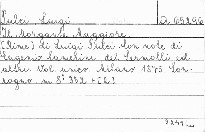 Pulci Luigi
Il Morgante Maggiore
(Rime) di Luigi Pulci con note di
Eugenio Camerini del Sermolli ed
altri Vol. unico Milano 1875 Son-
zogno in 8° 392 +